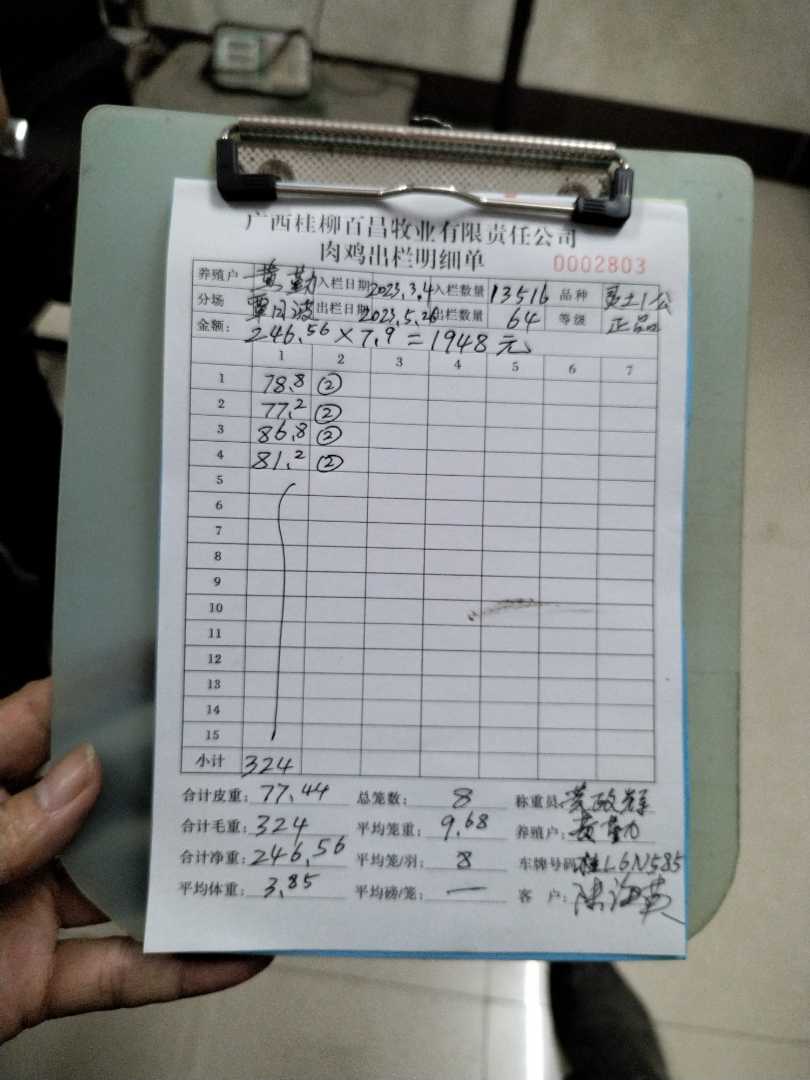 广西桂柳百昌牧业有限责任公司
肉鸡出栏明细单 0002803
养殖户 黄勤 入栏日期 2023.3.4 入栏数量 13516 品种
分场 覃月波 出栏日期 2023.5.26 出栏数量 64 等级 正品
金额: 246.56×7.9=1948元
1 2 3 4 5 6 7
1 78.8 ②
2 77.2 ②
3 86.8 ②
4 81.2 ②
5
6
7
8
9
10
11
12
13
14
15
小计 324
合计皮重: 77.44 总笼数: 8 称重员: 黄政辉
合计毛重: 324 平均笼重: 9.68 养殖户: 黄勤
合计净重: 246.56 平均笼/羽: 8 车牌号码: 桂L6N585
平均体重: 3.85 平均磅/笼: — 客户: